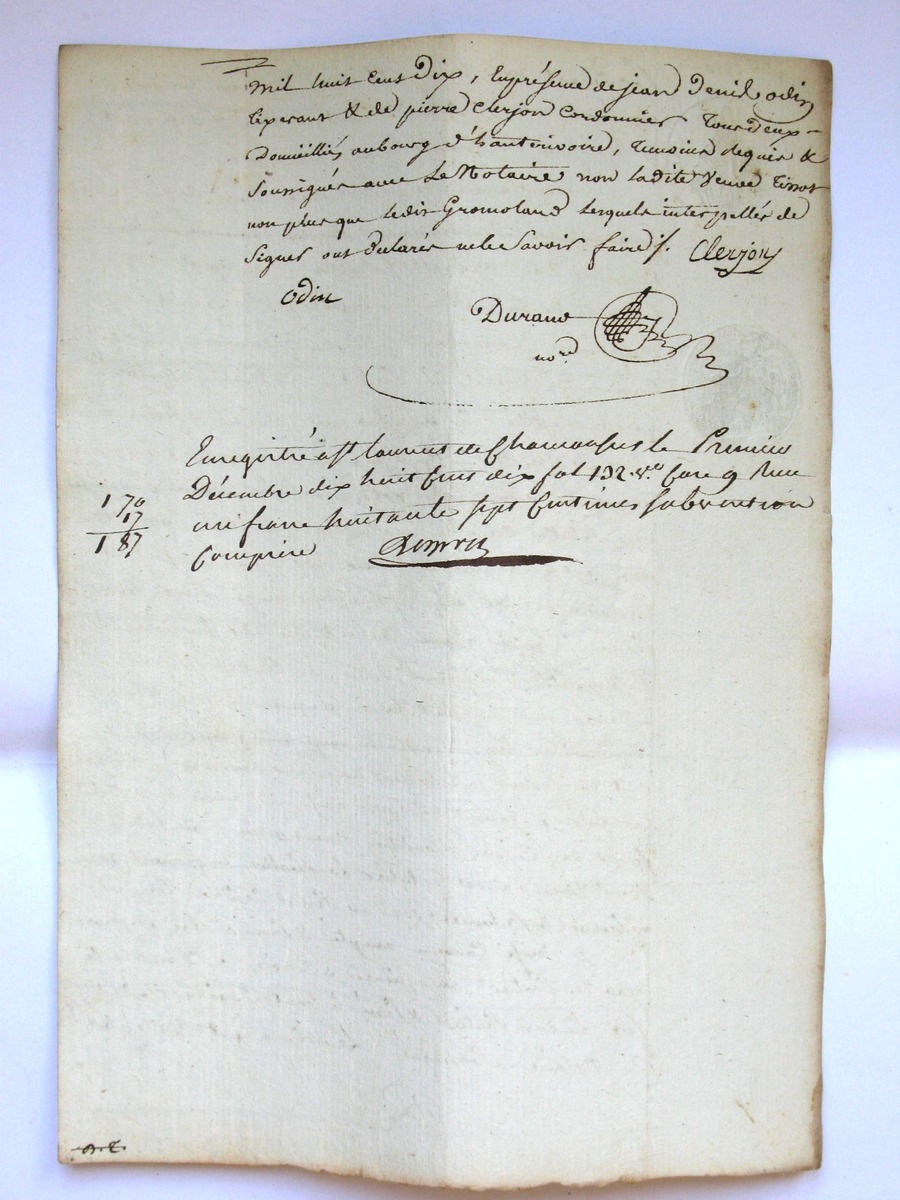 mil huit cent dix, En présence de jean Denis odin
tixerant & de pierre Clerjon Cordonnier Tous deux
Domicilliés au bourg d'hauterivoire, temoins requis &
Soussignés avec Le Notaire non ladite Veuve Tissot
non plus que ledit Gromoland Lesquels interpellés de
Signer ont déclarés ne le Savoir faire /. Clerjon
odin
Durand
no.re
Enregistré a st laurent de Chamousset le Premier
Décembre dix huit Cent dix fol 132 v.o Case 9 Recu
un franc huitante sept Centimes subvention
Comprise
1 70
17
1 87